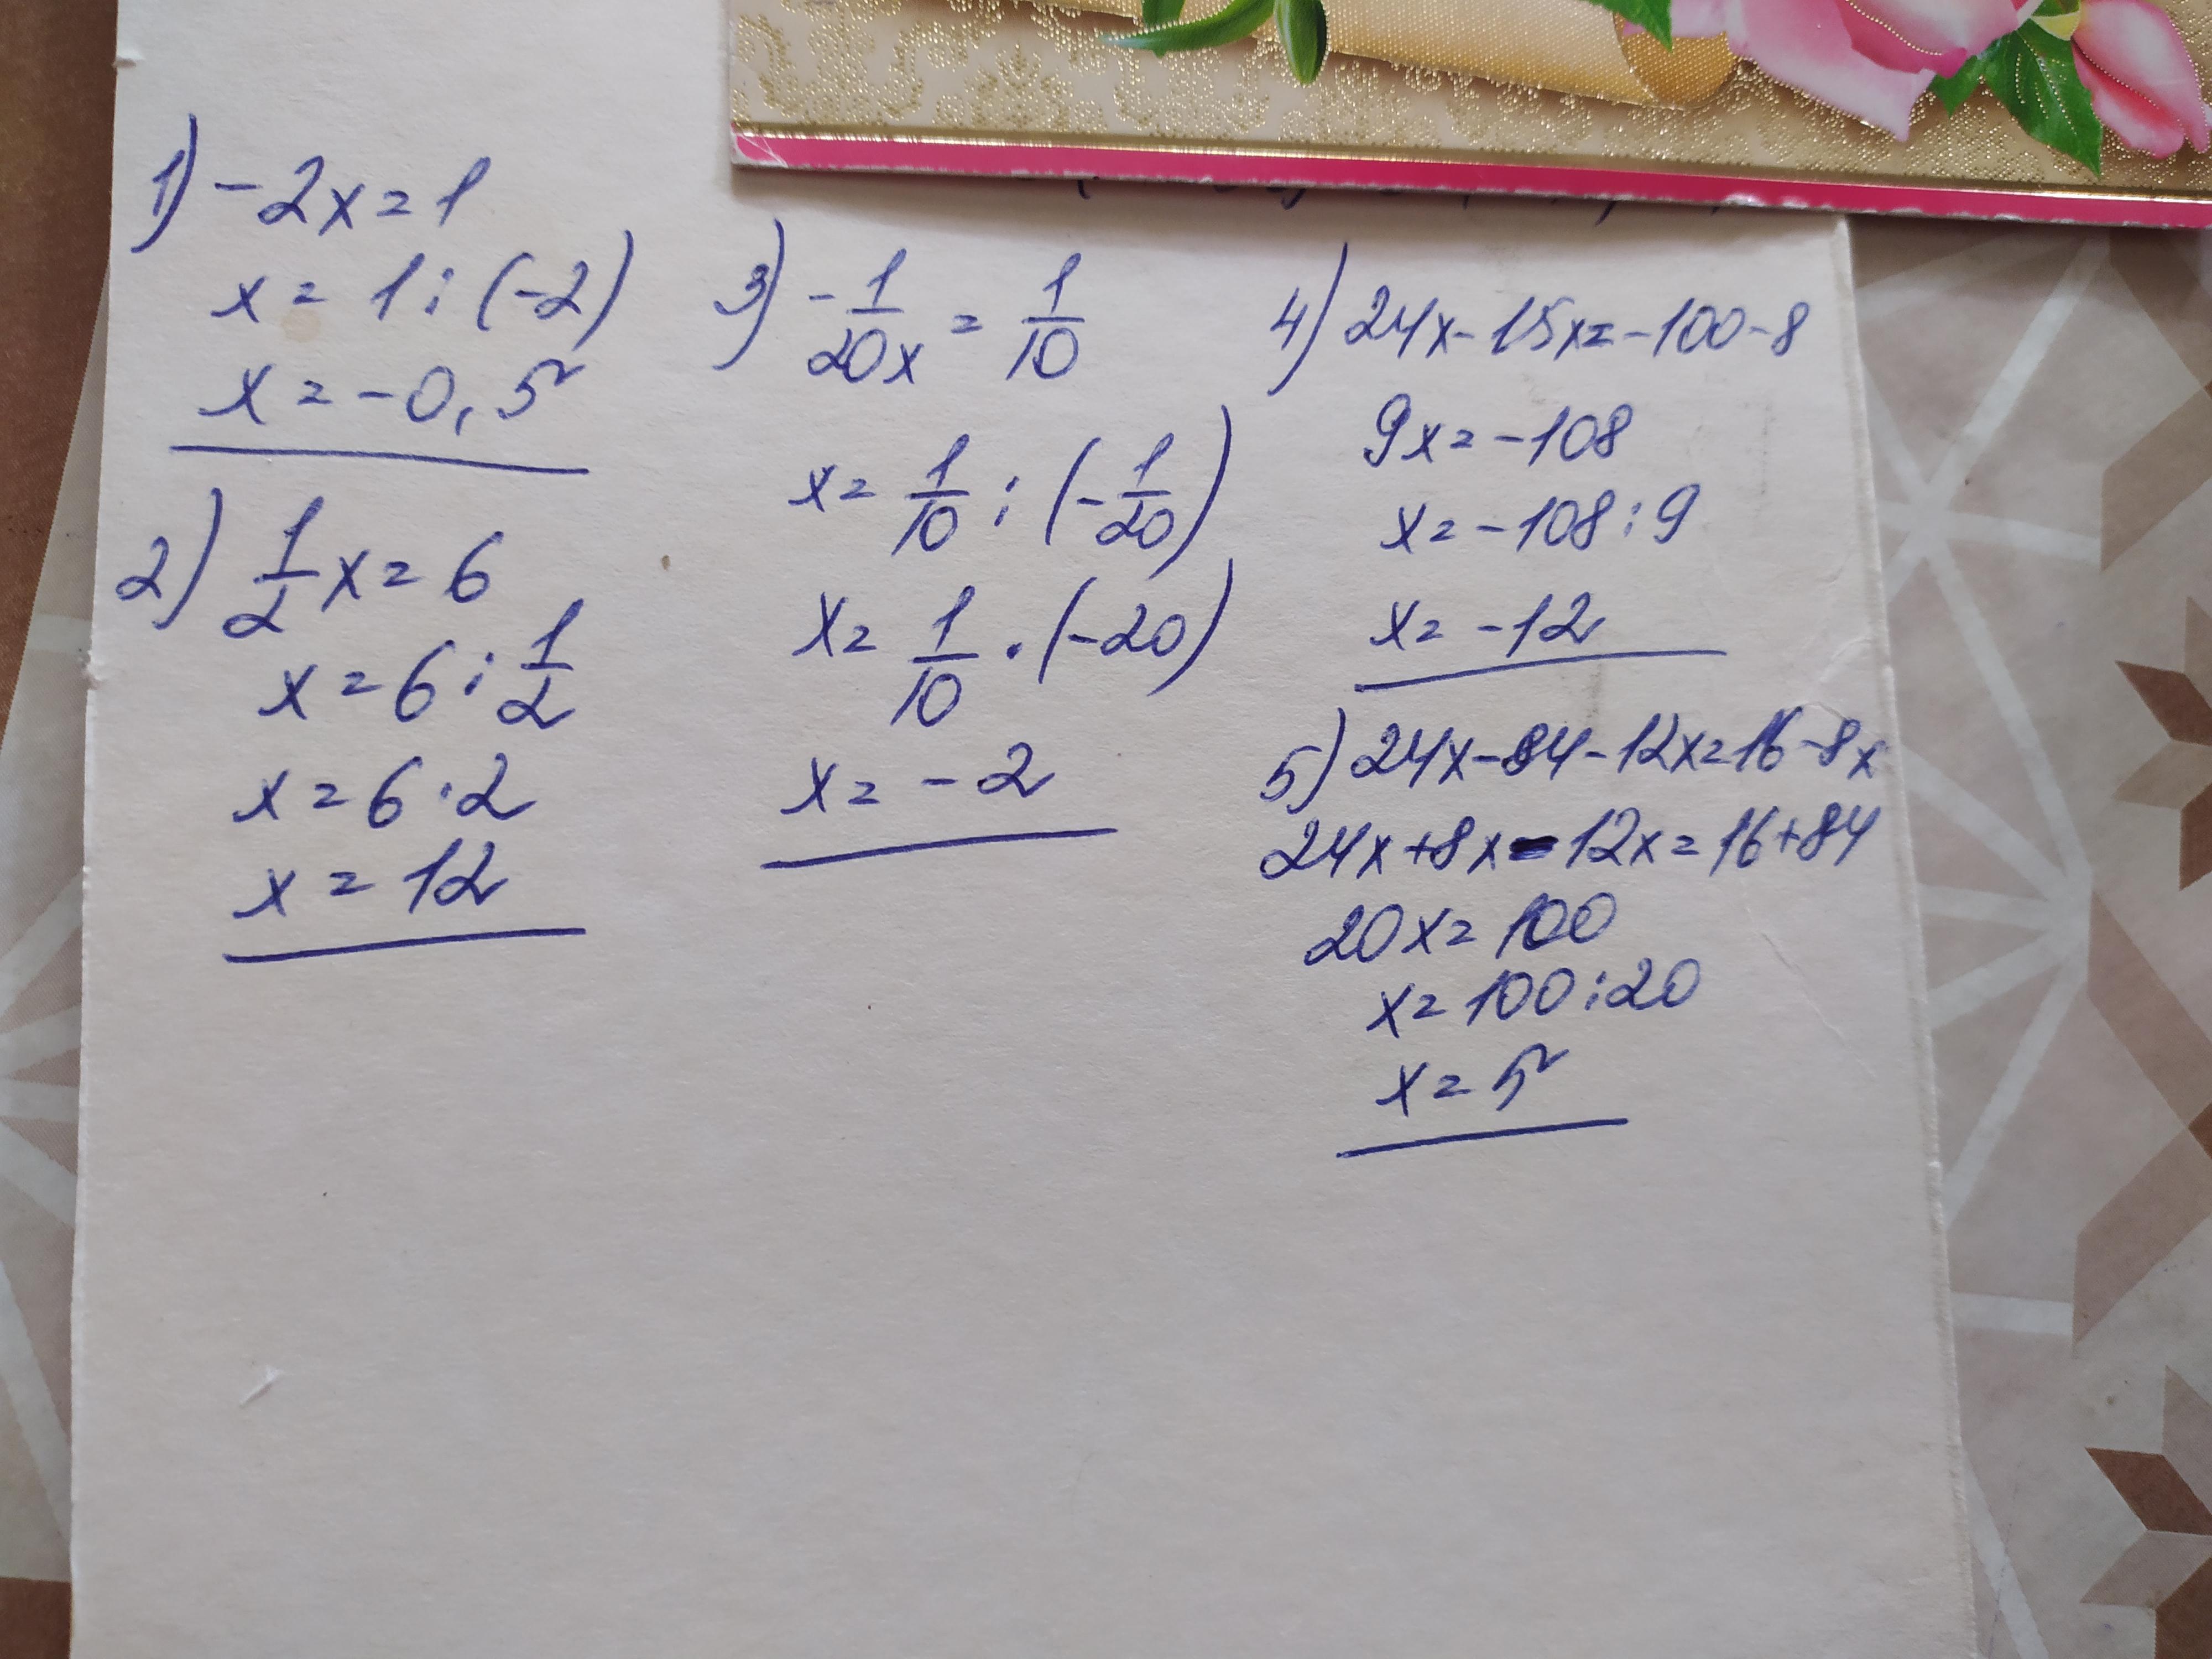 1) -2x=1
x= 1:(-2)
x=-0,5
2) 1/2 x=6
x=6:1/2
x=6·2
x=12
3) -1/20x = 1/10
x= 1/10 : (-1/20)
x= 1/10 · (-20)
x= -2
4) 24x-15x=-100-8
9x=-108
x=-108:9
x=-12
5) 24x-84-12x=16-8x
24x+8x-12x=16+84
20x=100
x=100:20
x=5